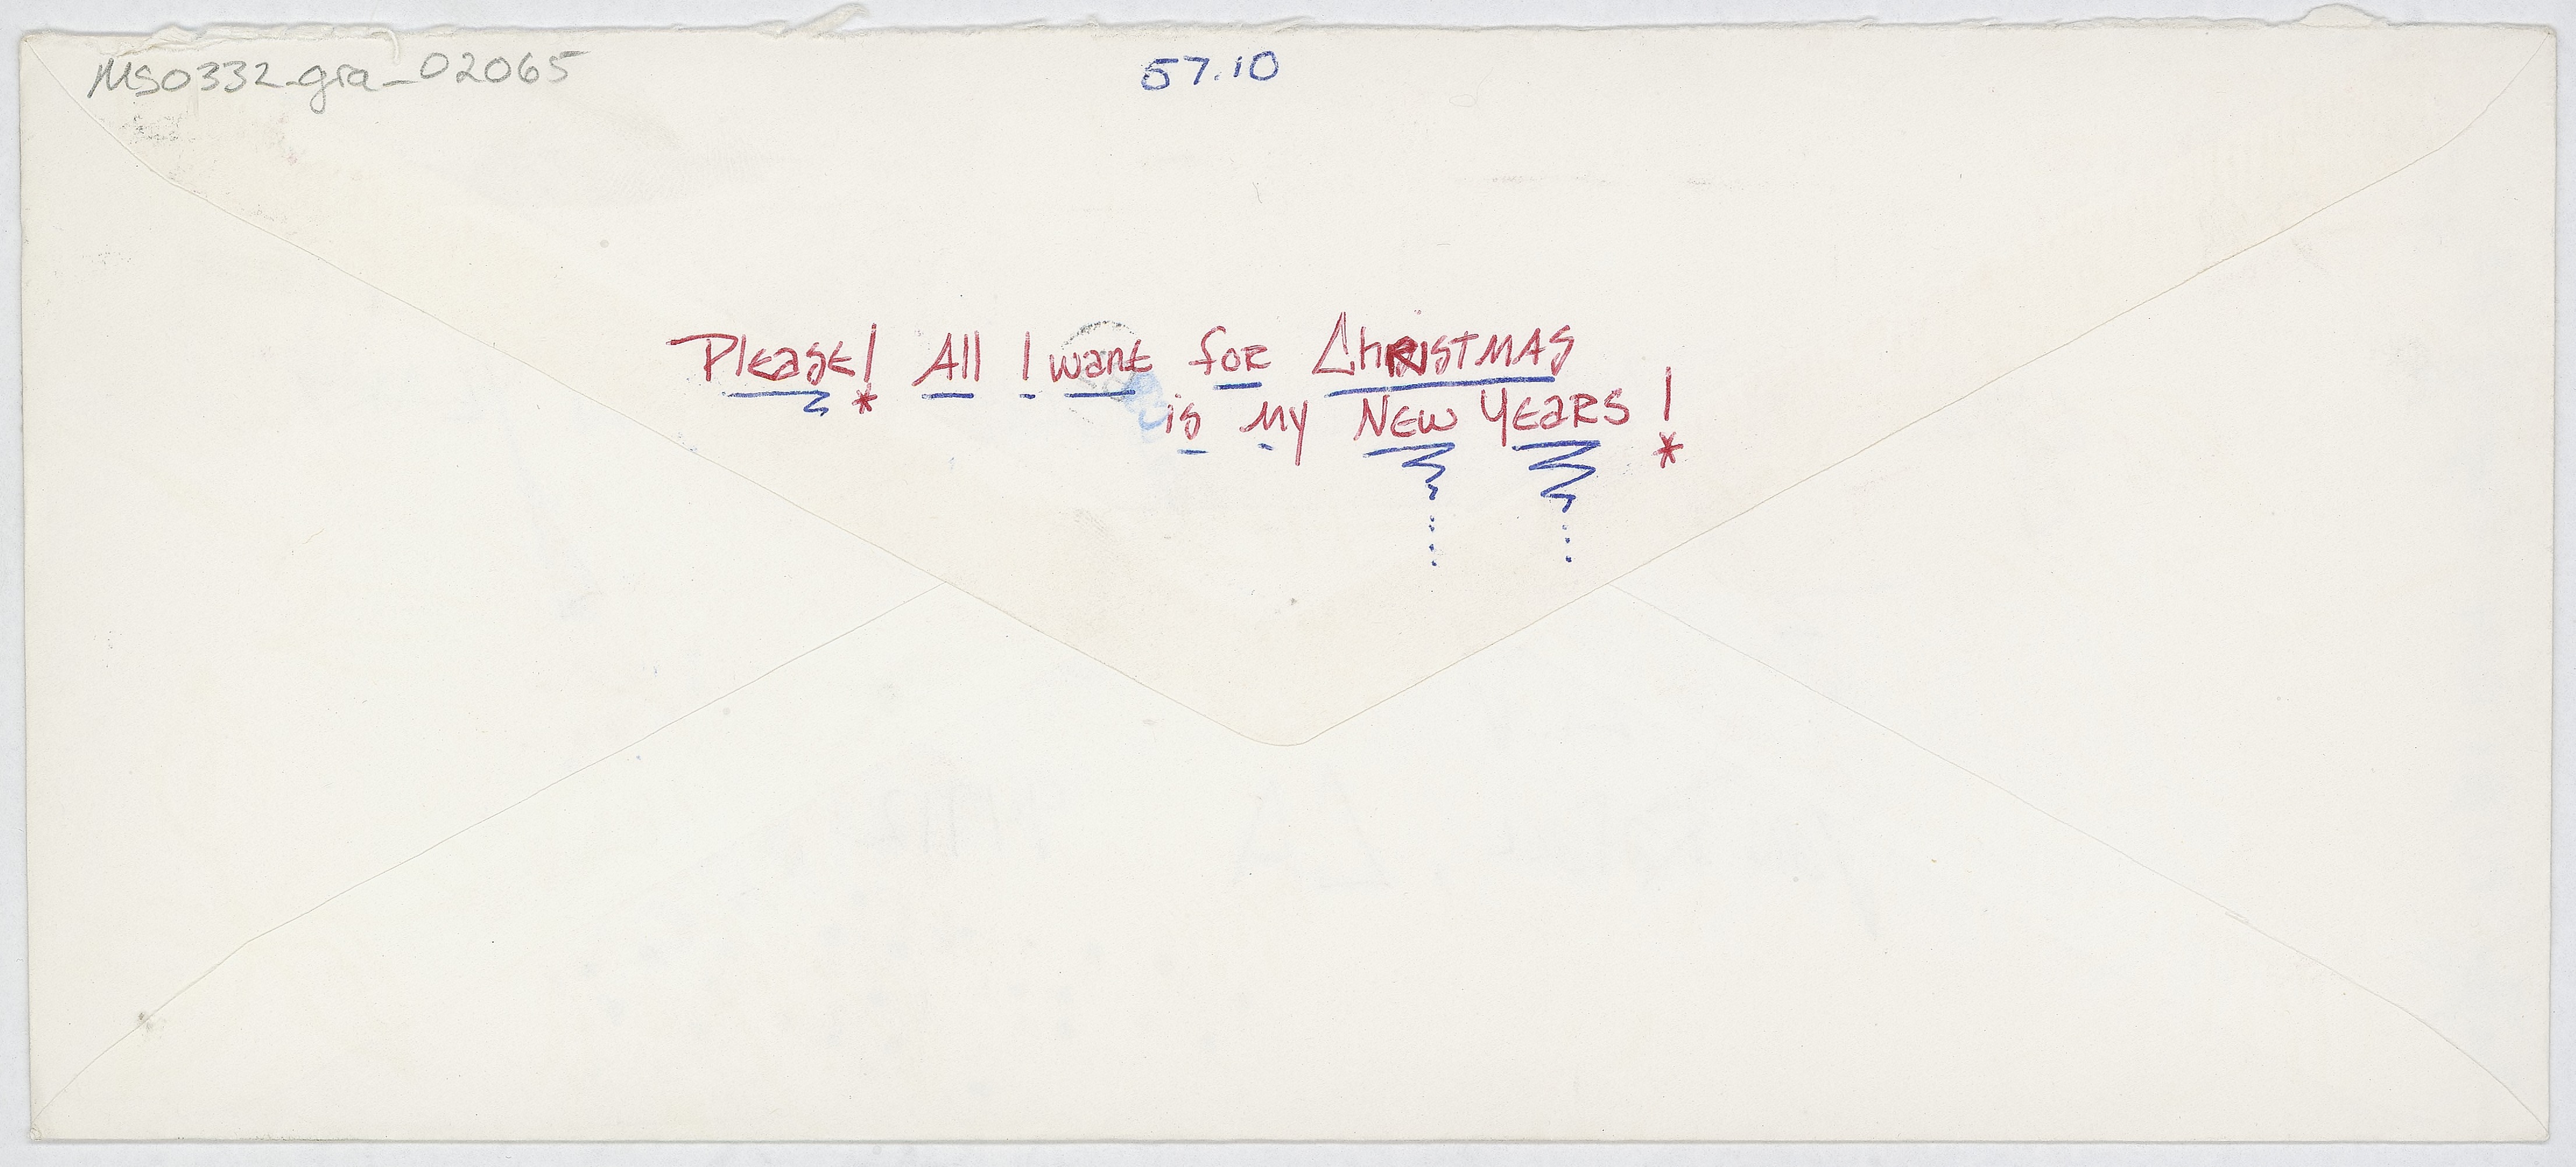 MS0332_gra_02065
57.10
Please! All I want for Christmas
is my New Years!